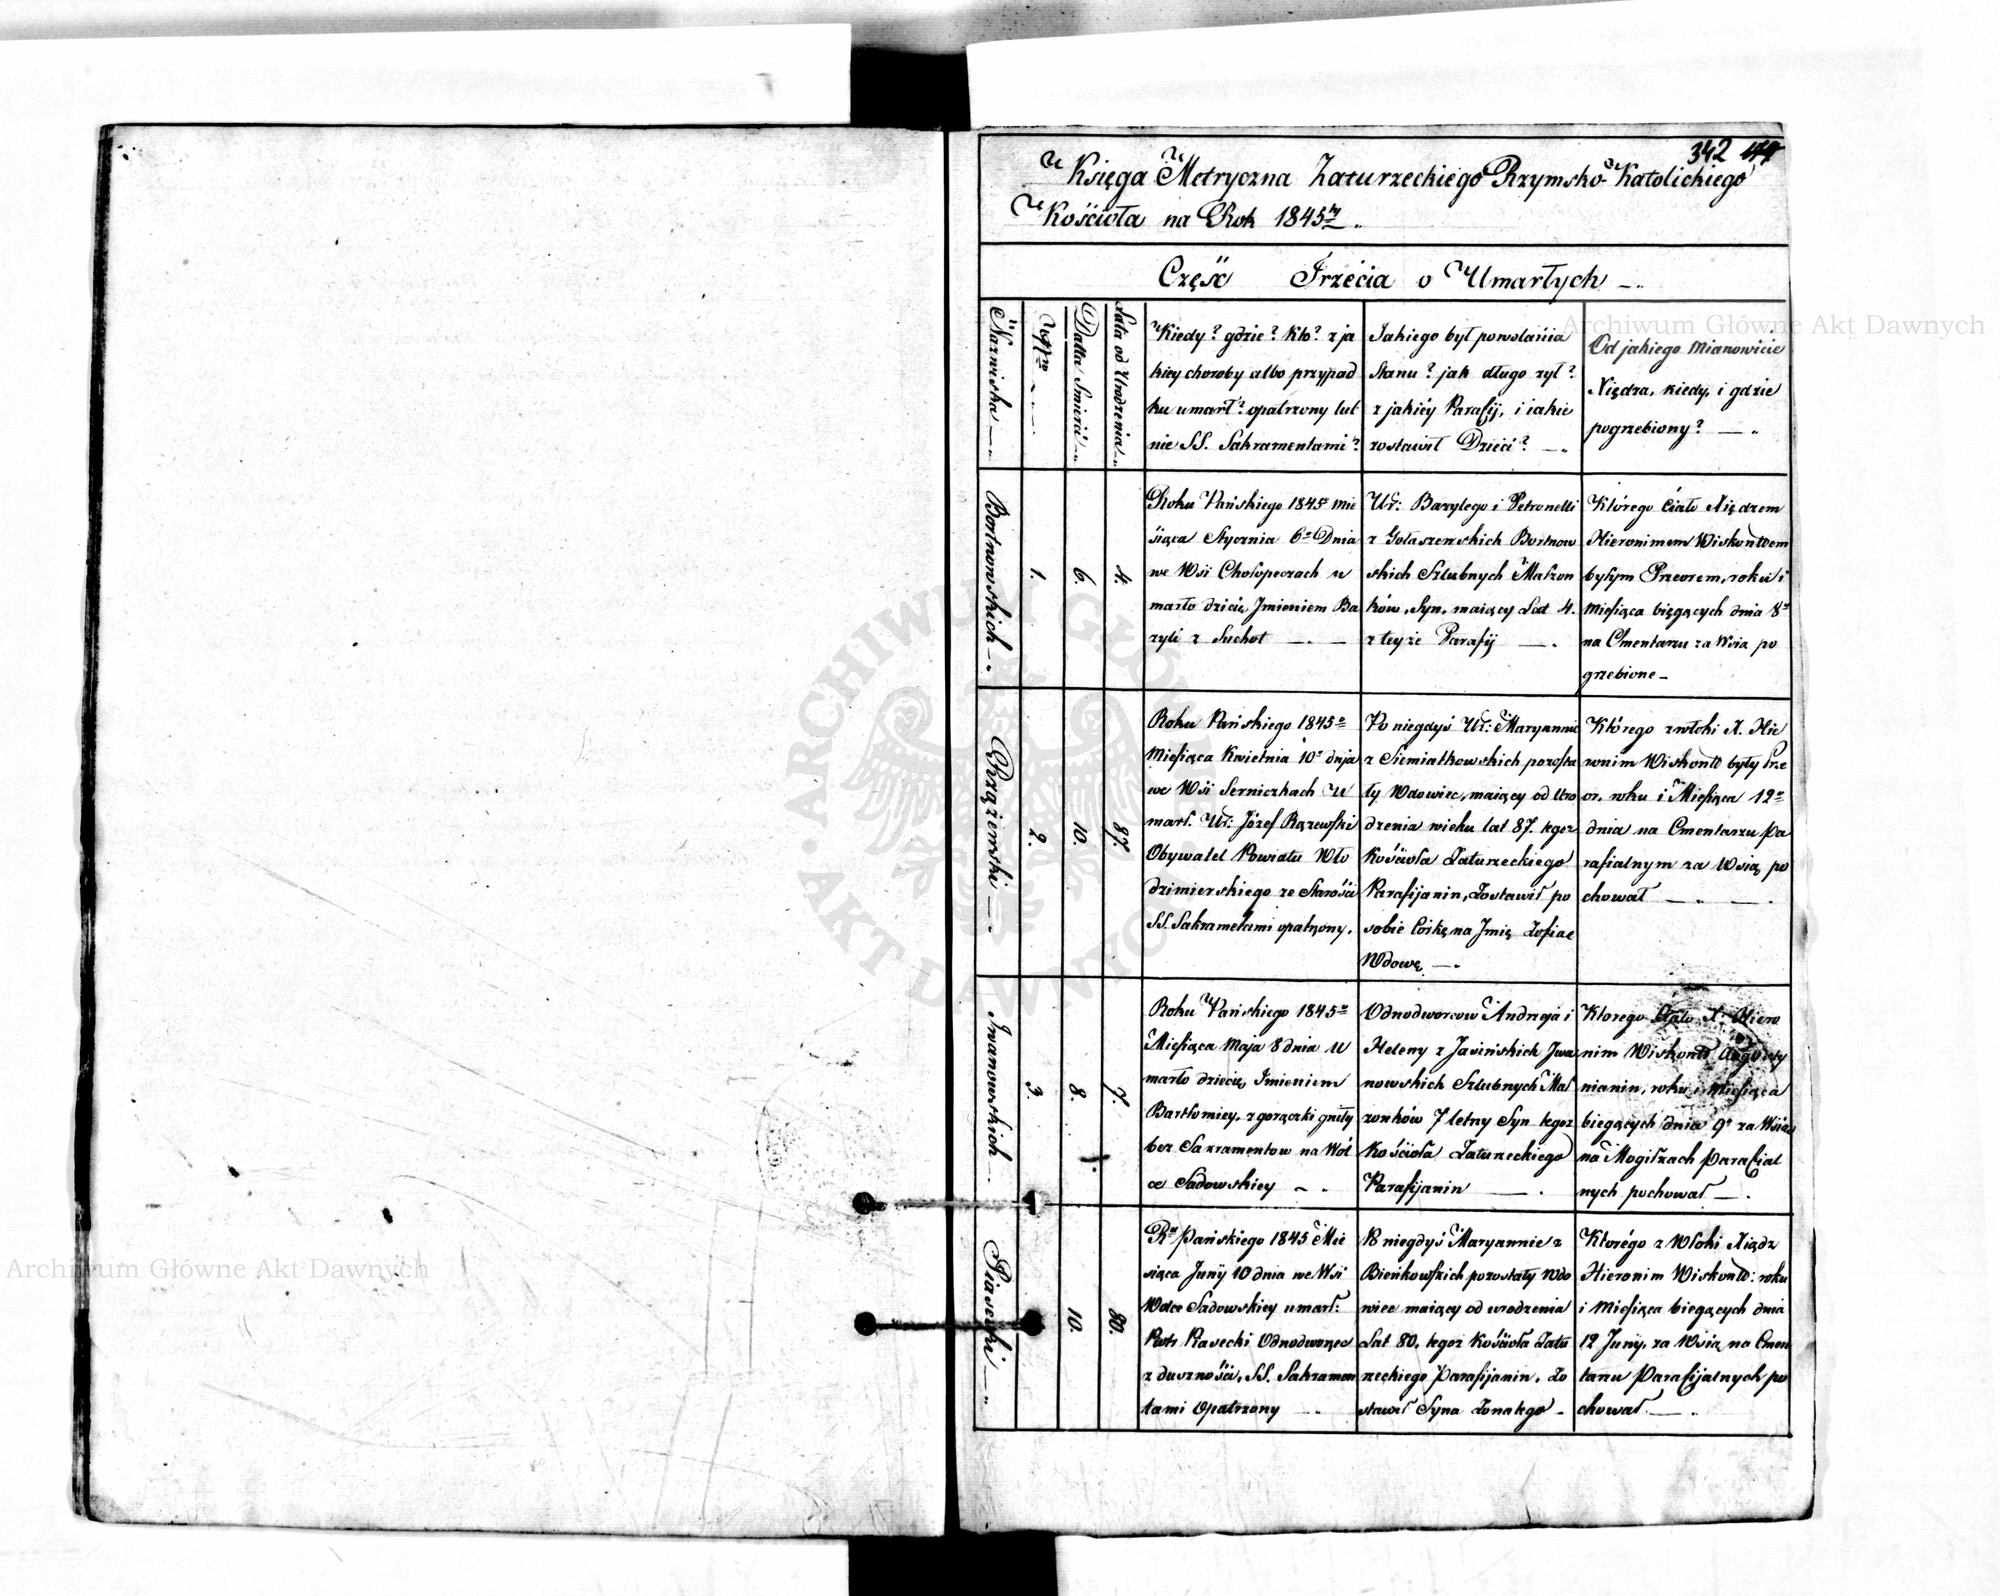 342
Księga Metryczna Zaturzeckiego Rzymsko-Katolickiego
Kościoła na Rok 1845ty
Część Trzécia o Umarłych
Nazwiska
Datta Smierci
Lata od Urodzenia
Kiedy? gdzie? Kto? z ja
kiey choroby albo przypad
ku umarł? opatrzony lub
nie SS. Sakramentami?
Jakiego był powołania
Stanu? jak długo żył?
z jakiéy Parafij, i iakie
zostawił Dzieci?
Od jakiego Mianowicie
Xiędza, kiedy, i gdzie
pogrzebiony?
Archiwum Główne Akt Dawnych
Bortnowskich
1.
6.
4.
Roku Pańskiego 1845o Mie
siąca Stycznia 6o Dnia
we Wsi Chołopeczach u
marło dziecię Jmieniem Ba
zyli z Suchot
Ur: Bazylego i Petronelli
z Gołaszewskich Bortnow
skich Szlubnych Małżon
ków, Syn, maiący Lat 4.
z teyże Parafij
Którego Ciało Xiędzem
Hieronimem Wiskontem
byłym Przeorem, roku i
Miesiąca bięgących dnia 8o
na Cmentarzu za Wsią po
grzebione
Rząźewski
2.
10.
87.
Roku Pańskiego 1845o
Miesiąca Kwietnia 10o dnia
we Wsi Serniczkach U
marł. Ur: Józef Rązewski
Obywatel Powiatu Wło
dzimierskiego ze Starości
SS. Sakrametami opatrzony.
Po niegdyś Ur: Maryannie
z Siemiatkowskich pozosta
ły Wdowiec, maiący od Uro
dzenia wieku lat 87. tegoz
Kościoła Zaturzeckiego
Parafijanin, Zostawił po
sobie Corkę na Jmię Zofiae
Wdowę
Którego zwłoki X. Hie
ronim Wiskont były Prze
or, roku i Miesiąca 12o
dnia na Cmentarzu Pa
rafialnym za Wsią po
chował
Jwanowskich
3.
8.
7.
Roku Pańskiego 1845o
Miesiąca Maja 8 dnia U
marło dziecię, Jmieniem
Bartłomiey, z gorączki gniłey
bez Sakramentow na Wol
ce Sadowskiey
Odnodworcow Andrzeja i
Heleny z Jasińskich Jwa
nowskich Szlubnych Mał
żonków 7 letny Syn tegoz
Kościoła Zaturzeckiego
Parafijanin
Ktorego Ciało X: Hiero
nim Wiskont Augusty
nianin, roku i Miesiąca
biegących dnia 9o za Wsią
na Mogiłkach Parafial
nych pochował
Piasecki
10.
80.
Ru Pańskiego 1845 Mie
siąca Junij 10 dnia we Wsi
Wolce Sadowskiey umarł:
Piotr Piasecki Odnodworzec
z duszności, SS. Sakramen
tami Opatrzony
Po niegdyś Maryannie z
Bieńkowskich pozostały Wdo
wiec maiący od urodzenia
Lat 80. tegoz Kościoła Zatu
rzeckiego Parafijanin. Zo
stawił Syna
Którégo z Włoki Xiądz
Hieronim Wiskont: roku
i Miesiąca biegących dnia
12 Junij, za Wsią na Cmen
tarzu Parafijalnych po
chował
Archiwum Główne Akt Dawnych
ARCHIWUM GŁÓWNE
AKT DAWNYCH